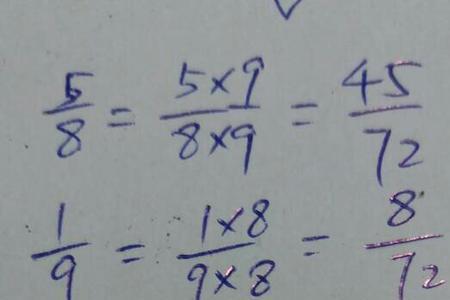 5/8 = 5×9/8×9 = 45/72
1/9 = 1×8/9×8 = 8/72